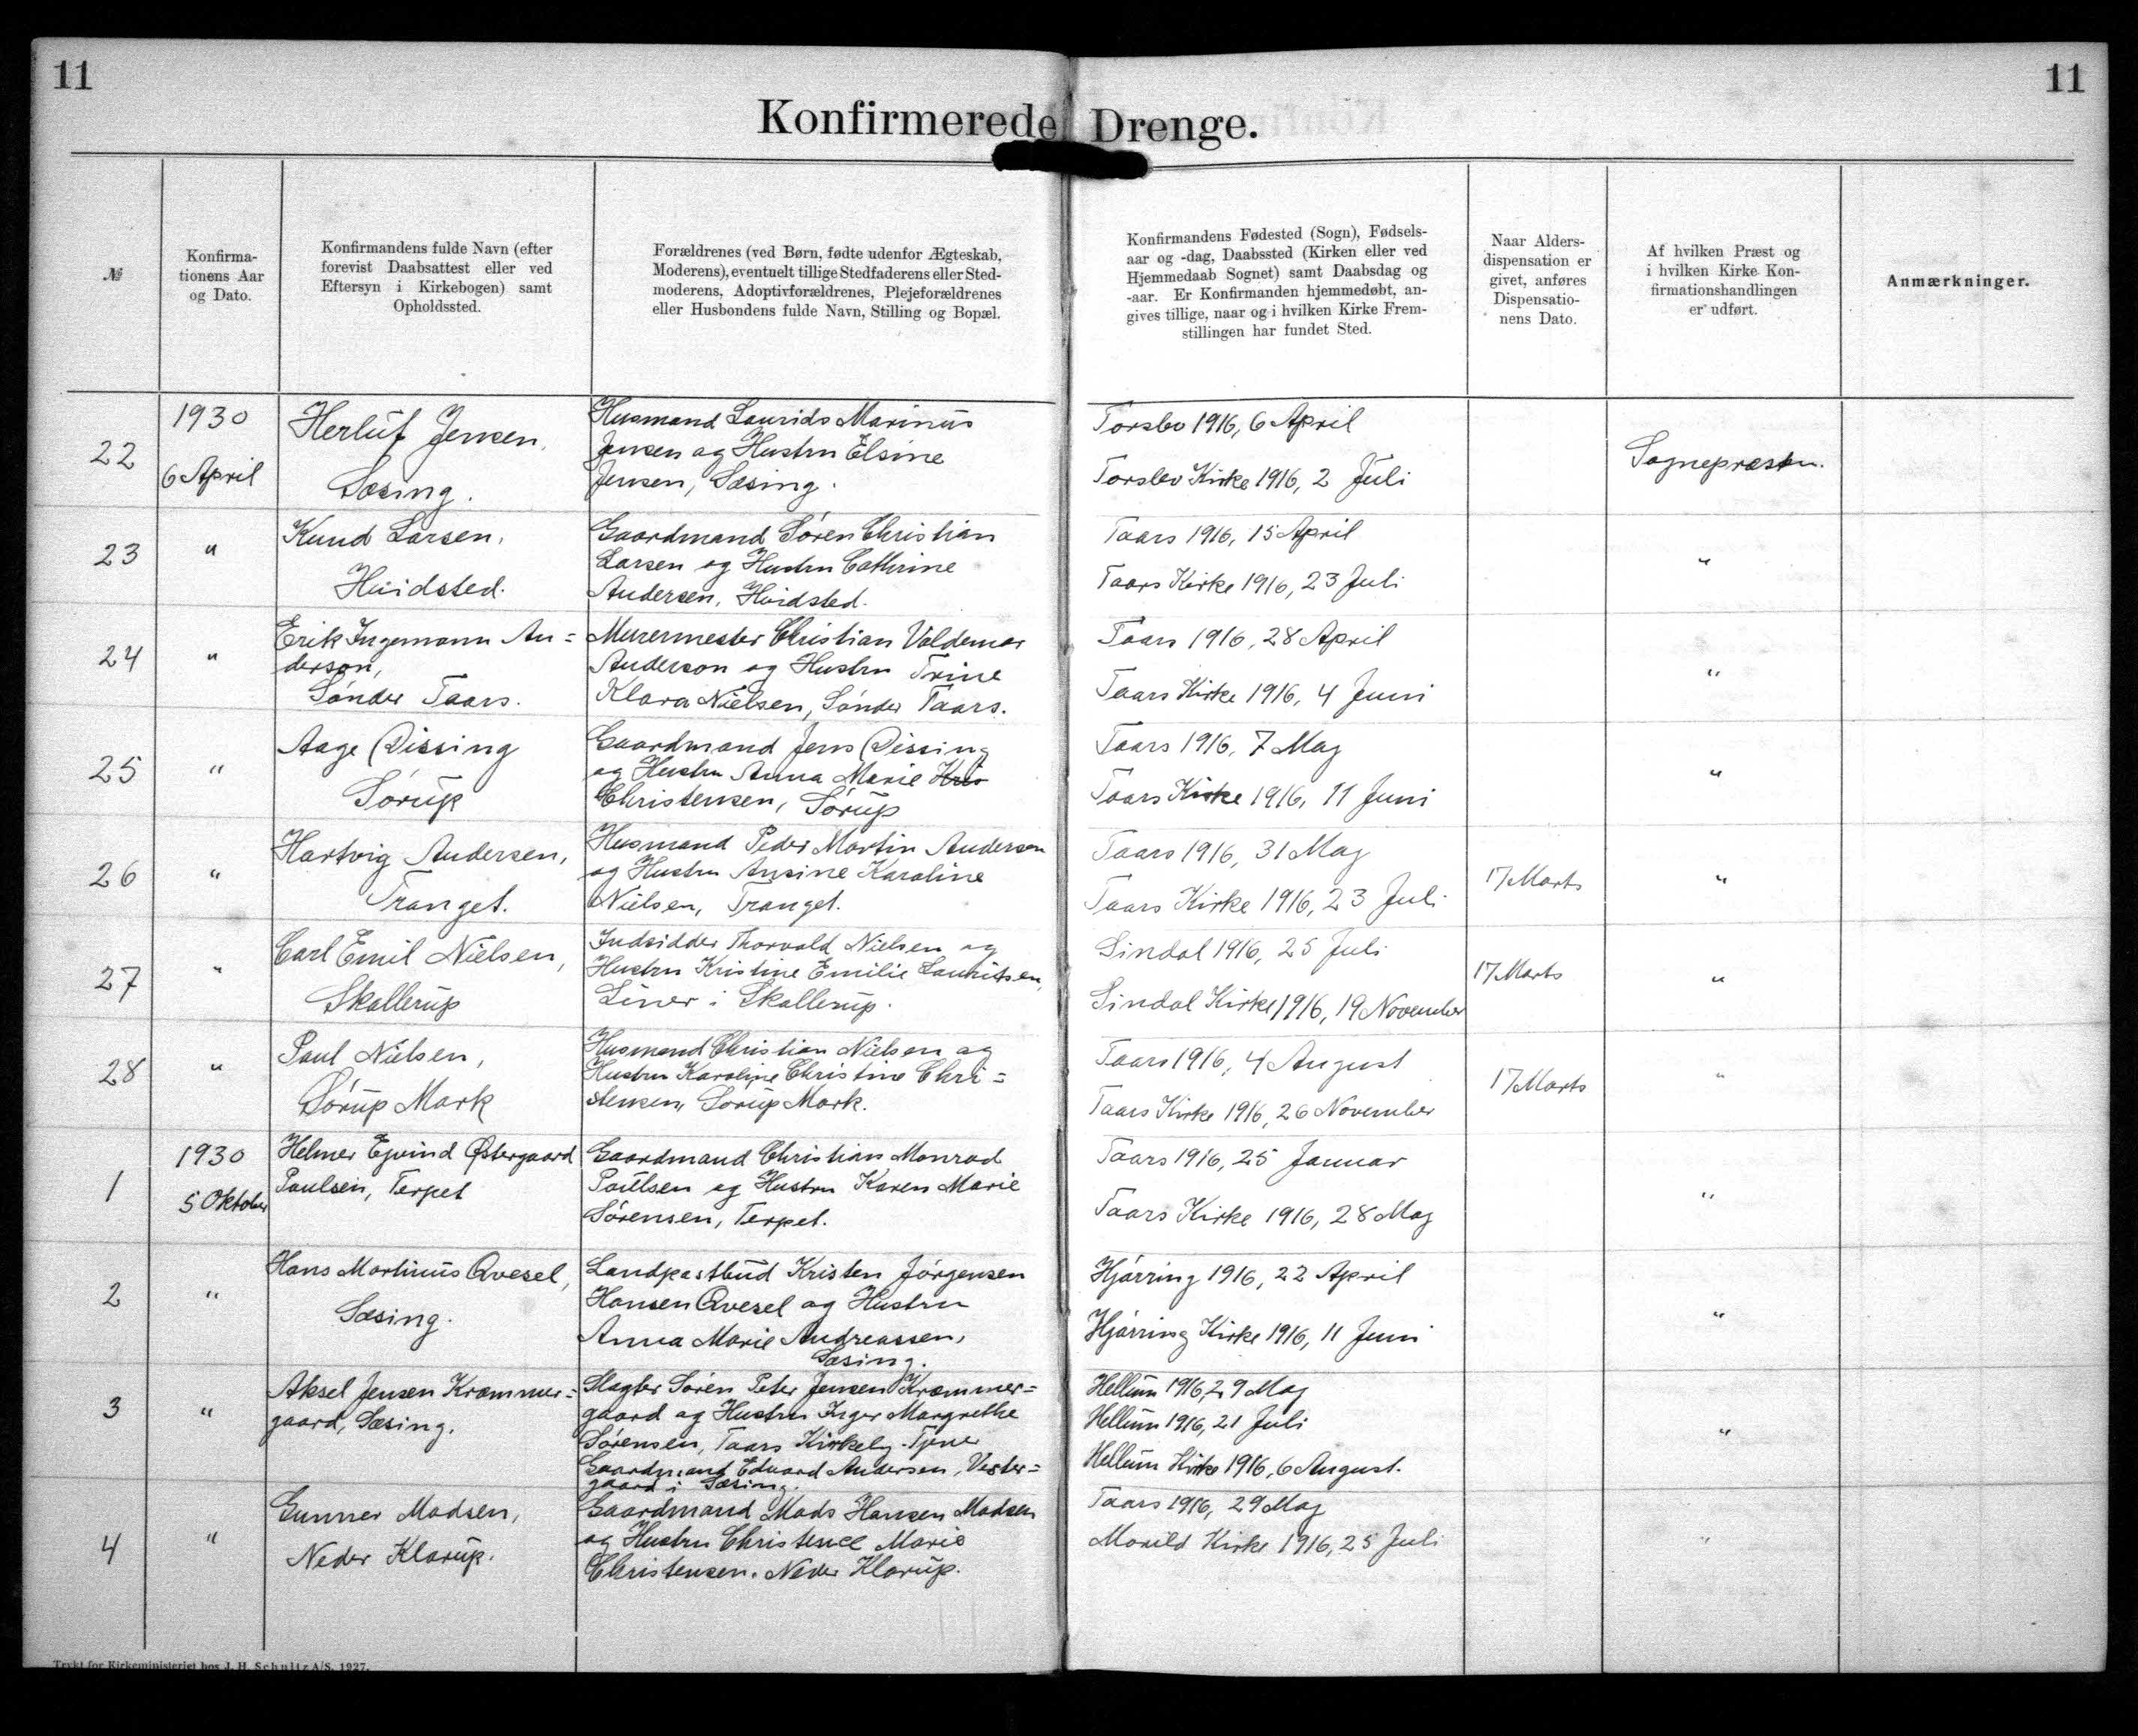 11
11
Konfirmerede Drenge.
№
Konfirma-
tionens Aar
og Dato.
Konfirmandens fulde Navn (efter
forevist Daabsattest eller ved
Eftersyn i Kirkebogen) samt
Opholdssted.
Forældrenes (ved Børn, fødte udenfor Ægteskab,
Moderens), eventuelt tillige Stedfaderens eller Sted-
moderens, Adoptivforældrenes, Plejeforældrenes
eller Husbondens fulde Navn, Stilling og Bopæl.
Konfirmandens Fødested (Sogn), Fødsels-
aar og -dag, Daabssted (Kirken eller ved
Hjemmedaab Sognet) samt Daabsdag og
-aar. Er Konfirmanden hjemmedøbt, an-
gives tillige, naar og i hvilken Kirke Frem-
stillingen har fundet Sted.
Naar Alders-
dispensation er
givet, anføres
Dispensatio-
nens Dato.
Af hvilken Præst og
i hvilken Kirke Kon-
firmationshandlingen
er udført.
Anmærkninger.
22
1930
6 April
Herluf Jensen,
Sæsing.
Husmand Laurids Marinus
Jensen og Hustru Elsine
Jensen, Sæsing.
Torslev 1916, 6 April
Torslev Kirke 1916, 2 Juli
Sognepræsten.
23
"
Knud Larsen,
Hvidsted.
Gaardmand Søren Christian
Larsen og Hustru Cathrine
Andersen, Hvidsted.
Taars 1916, 15 April
Taars Kirke 1916, 23 Juli
"
24
"
Erik Ingemann An=
derson,
Sønder Taars.
Murermester Christian Valdemar
Anderson og Hustru Trine
Klara Nielsen, Sønder Taars.
Taars 1916, 28 April
Taars Kirke 1916, 4 Juni
"
25
"
Aage Dissing
Sørup
Gaardmand Jens Dissing
og Hustru Anna Marie Kris
Christensen, Sørup
Taars 1916, 7 Maj
Taars Kirke 1916, 11 Juni
"
26
"
Hartvig Andersen,
Tranget.
Husmand Peder Martin Andersen
og Hustru Ansine Karoline
Nielsen, Tranget.
Taars 1916, 31 Maj
Taars Kirke 1916, 23 Juli
17 Marts
"
27
"
Carl Emil Nielsen,
Skallerup
Indsidder Thorvald Nielsen og
Hustru Kristine Emilie Lauritsen,
Liner i Skallerup.
Sindal 1916, 25 Juli
Sindal Kirke 1916, 19 November
17 Marts
"
28
"
Poul Nielsen,
Sørup Mark
Husmand Christian Nielsen og
Hustru Karoline Christine Chri=
stensen, Sørup Mark.
Taars 1916, 4 August
Taars Kirke 1916, 26 November
17 Marts
"
1
1930
5 Oktober
Helmer Ejvind Østergaard
Poulsen, Terpet
Gaardmand Christian Monrad
Poulsen og Hustru Karen Marie
Sørensen, Terpet.
Taars 1916, 25 Januar
Taars Kirke 1916, 28 Maj
"
2
"
Hans Martinus Qvesel,
Sæsing.
Landpostbud Kristen Jørgensen
Hansen Qvesel og Hustru
Anna Marie Andreassen,
Sæsing.
Hjørring 1916, 22 April
Hjørring Kirke 1916, 11 Juni
"
3
"
Aksel Jensen Krammer=
gaard, Sæsing.
Slagter Søren Peter Jensen Krammer=
gaard og Hustru Inger Margrethe
Sørensen, Taars Kirkeby. Tjener
Gaardmand Edvard Andersen, Vester=
gaard i Sæsing.
Hellum 1916, 29 Maj
Hellum 1916, 21 Juli
Hellum Kirke 1916, 6 August.
"
4
"
Gunner Madsen,
Neder Klarup.
Gaardmand Mads Hansen Madsen
og Hustru Christence Marie
Christensen. Neder Klarup.
Taars 1916, 29 Maj
Morild Kirke 1916, 25 Juli
"
Trykt for Kirkeministeriet hos J. H. Schultz A/S. 1927.